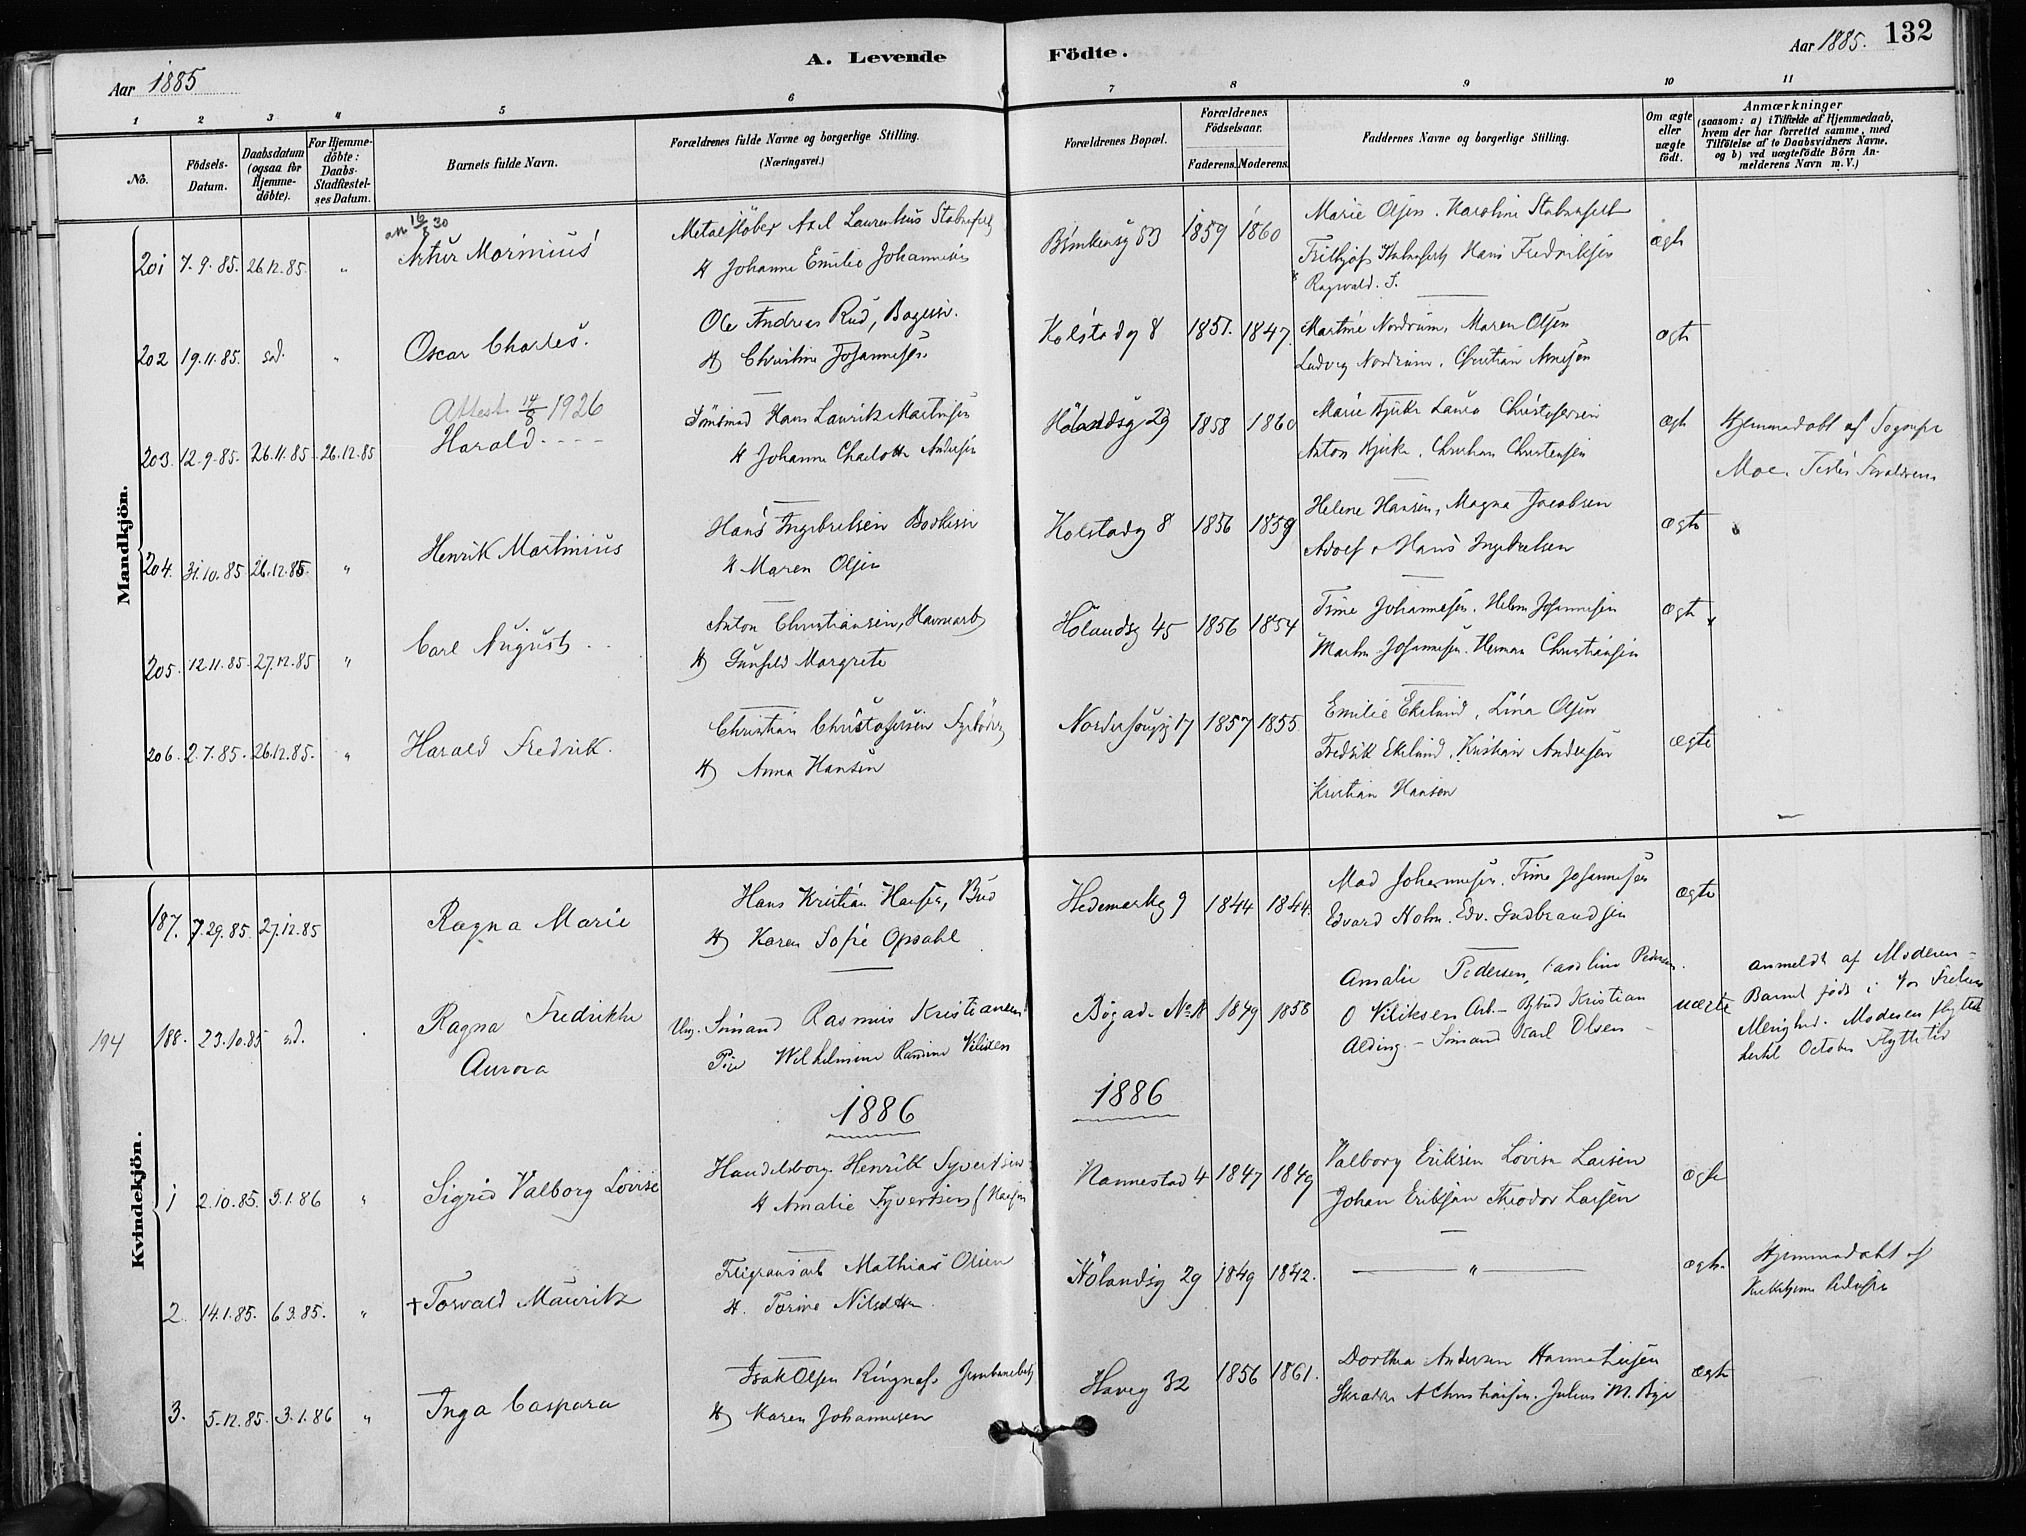 132
A. Levende Födte.
Aar 1885
Aar 1885.
1 2 3 4 5 6 7 8 9 10 11
No.
Födsels-Datum.
Daabsdatum (ogsaa for Hjemme-döbte).
For Hjemme-döbte: Daabs-Stadfæstel-ses Datum.
Barnets fulde Navn.
Forældrenes fulde Navne og borgerlige Stilling.
(Næringsvei.)
Forældrenes Bopæl.
Forældrenes Födselsaar.
Faderens. Moderens.
Faddernes Navne og borgerlige Stilling.
Om ægte eller uægte födt.
Anmærkninger
(saasom: a) i Tilfælde af Hjemmedaab, hvem der har forrettet samme, med Tilföielse af to Daabsvidners Navne, og b) ved uægtefödte Börn An-melderens Navn m. V.)
Mandkjön.
201 7.9.85. 26.12.85. "
Artur Marinius
Metalstöber Axel Laurentius
H Johanne Emilie
53 1859 1860
Marie Olsen. Karoline
Hans Fredriksen
Ragvald. S.
ægte
202 19.11.85. sd. "
Oscar Charles.
Ole Andreas Rud, Bagersv.
H Christine Johannesen
Kolstadg 8 1851. 1847.
Martine Nordrum, Maren Olsen
Ludvig Nordrum, Christian
ægte
Attest 14/8 1926
203. 12.9.85. 26.11.85 26.12.85
Harald
Sömand Hans Lauritz Martinsen
H Johanne Charlotte Andersen
Hölandsg 29 1858 1860
Marie Laura Christofersen
Anton Christian Christensen
ægte
Hjemmedöbt af Sognepr
Moe.
204. 31.10.85 26.12.85. "
Henrik Martinius
Hans Ingebretsen
H Maren Olsen
Kolstadg 8 1856 1859
Helene Hansen, Magna Jacobsen
Adolf & Hans Ingebretsen
ægte
205. 12.11.85. 27.12.85 "
Carl August
Anton Christiansen, Havnearb
H Gunhild Margrete
Hölandsg 45 1856 1854
Johannesen. Johannesen
Johannesen. Herman Christiansen
ægte
206. 2.7.85. 26.12.85. "
Harald Fredrik.
Christian Christofersen
H Anna Hansen
17 1857 1855.
Emilie Ekelund, Lina Olsen
Fredrik Ekelund, Kristian Andersen
Kristian Hansen
ægte
Kvindekjön.
187. 7.29.85. 27.12.85
Ragna Marie
Hans Kristian Hansen, Bud
H Karen Sofie Opsahl
Hedemarkg 9 1844 1844.
Johannesen. Johannesen
Edvard Holm. Edv. Gudbrandsen
ægte
194
188. 23.10.85 sd.
Ragna Fredrikke
Aurora
Ung. Sömand Rasmus Kristiansen
Pige Wilhelmine
1849 1858
Amalie Pedersen, Caroline Pedersen.
Kristian
Sömand Karl Olsen
uægte
anmeldt af Moderen -
Barnet födt i
Menighed. Moderen flyttet
October Flyttetid
1886
1886
1 2.10.85. 3.1.86 "
Sigrid Valborg Lovise
Handelsborg. Henrik Syvertsen
H Amalie Syvertsen f Hansen
Nannestad 4 1847 1849
Valborg Eriksen Lovise Larsen
Johan Eriksen Theodor Larsen
ægte
2. 14.1.85. 6.3.85. "
† Torvald Mauritz
Filigransarb Mathias Olsen
H. Torine
Hölandsg 29 1849 1842.
"
ægte
Hjemmedöbt af
3. 5.12.85. 3.1.86 "
Inga Caspara
Isak Olsen
H Karen Johannesen
Haveg 32 1856 1861.
Dorthea Andersen Hanna
A Christiansen. Julius M.
ægte